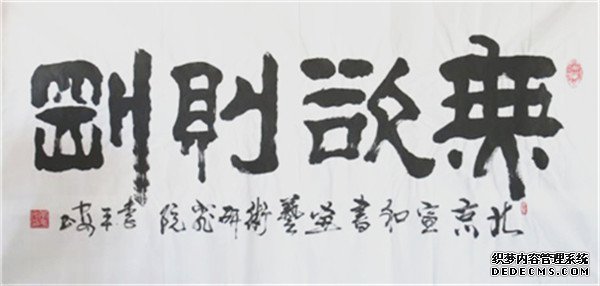 無欲則剛
北京宣和書畫藝術研究院 李平
织梦内容管理系统
DEDECMS.COM